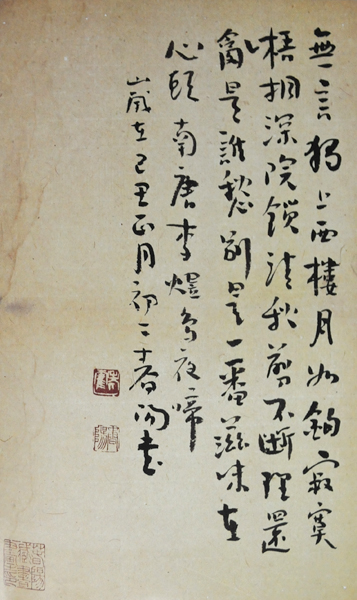 無言獨上西樓月如鉤寂寞
梧桐深院鎖清秋剪不斷理還
亂是離愁別是一番滋味在
心頭南唐李煜烏夜啼
歲在己丑正月初二書